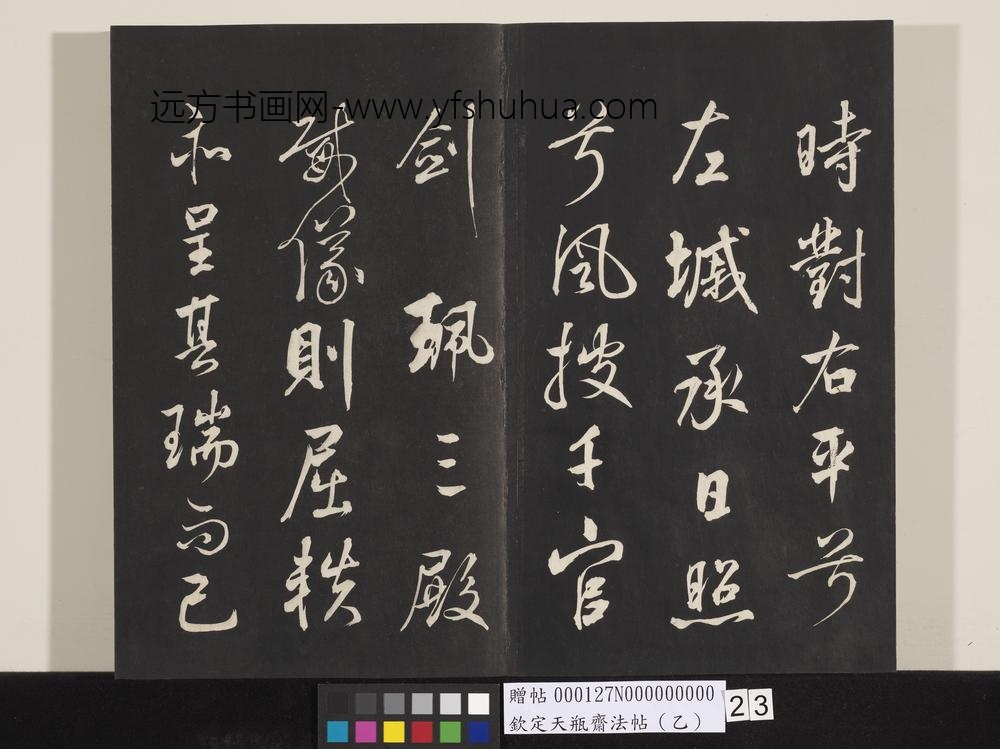 時對右平兮
左墄承日照
兮風披千官
劍珮三殿
威儀則屈軼
亦呈其瑞而已
远方书画网-www.yfshuhua.com
贈帖 000127N000000000
欽定天瓶齋法帖(乙)
23